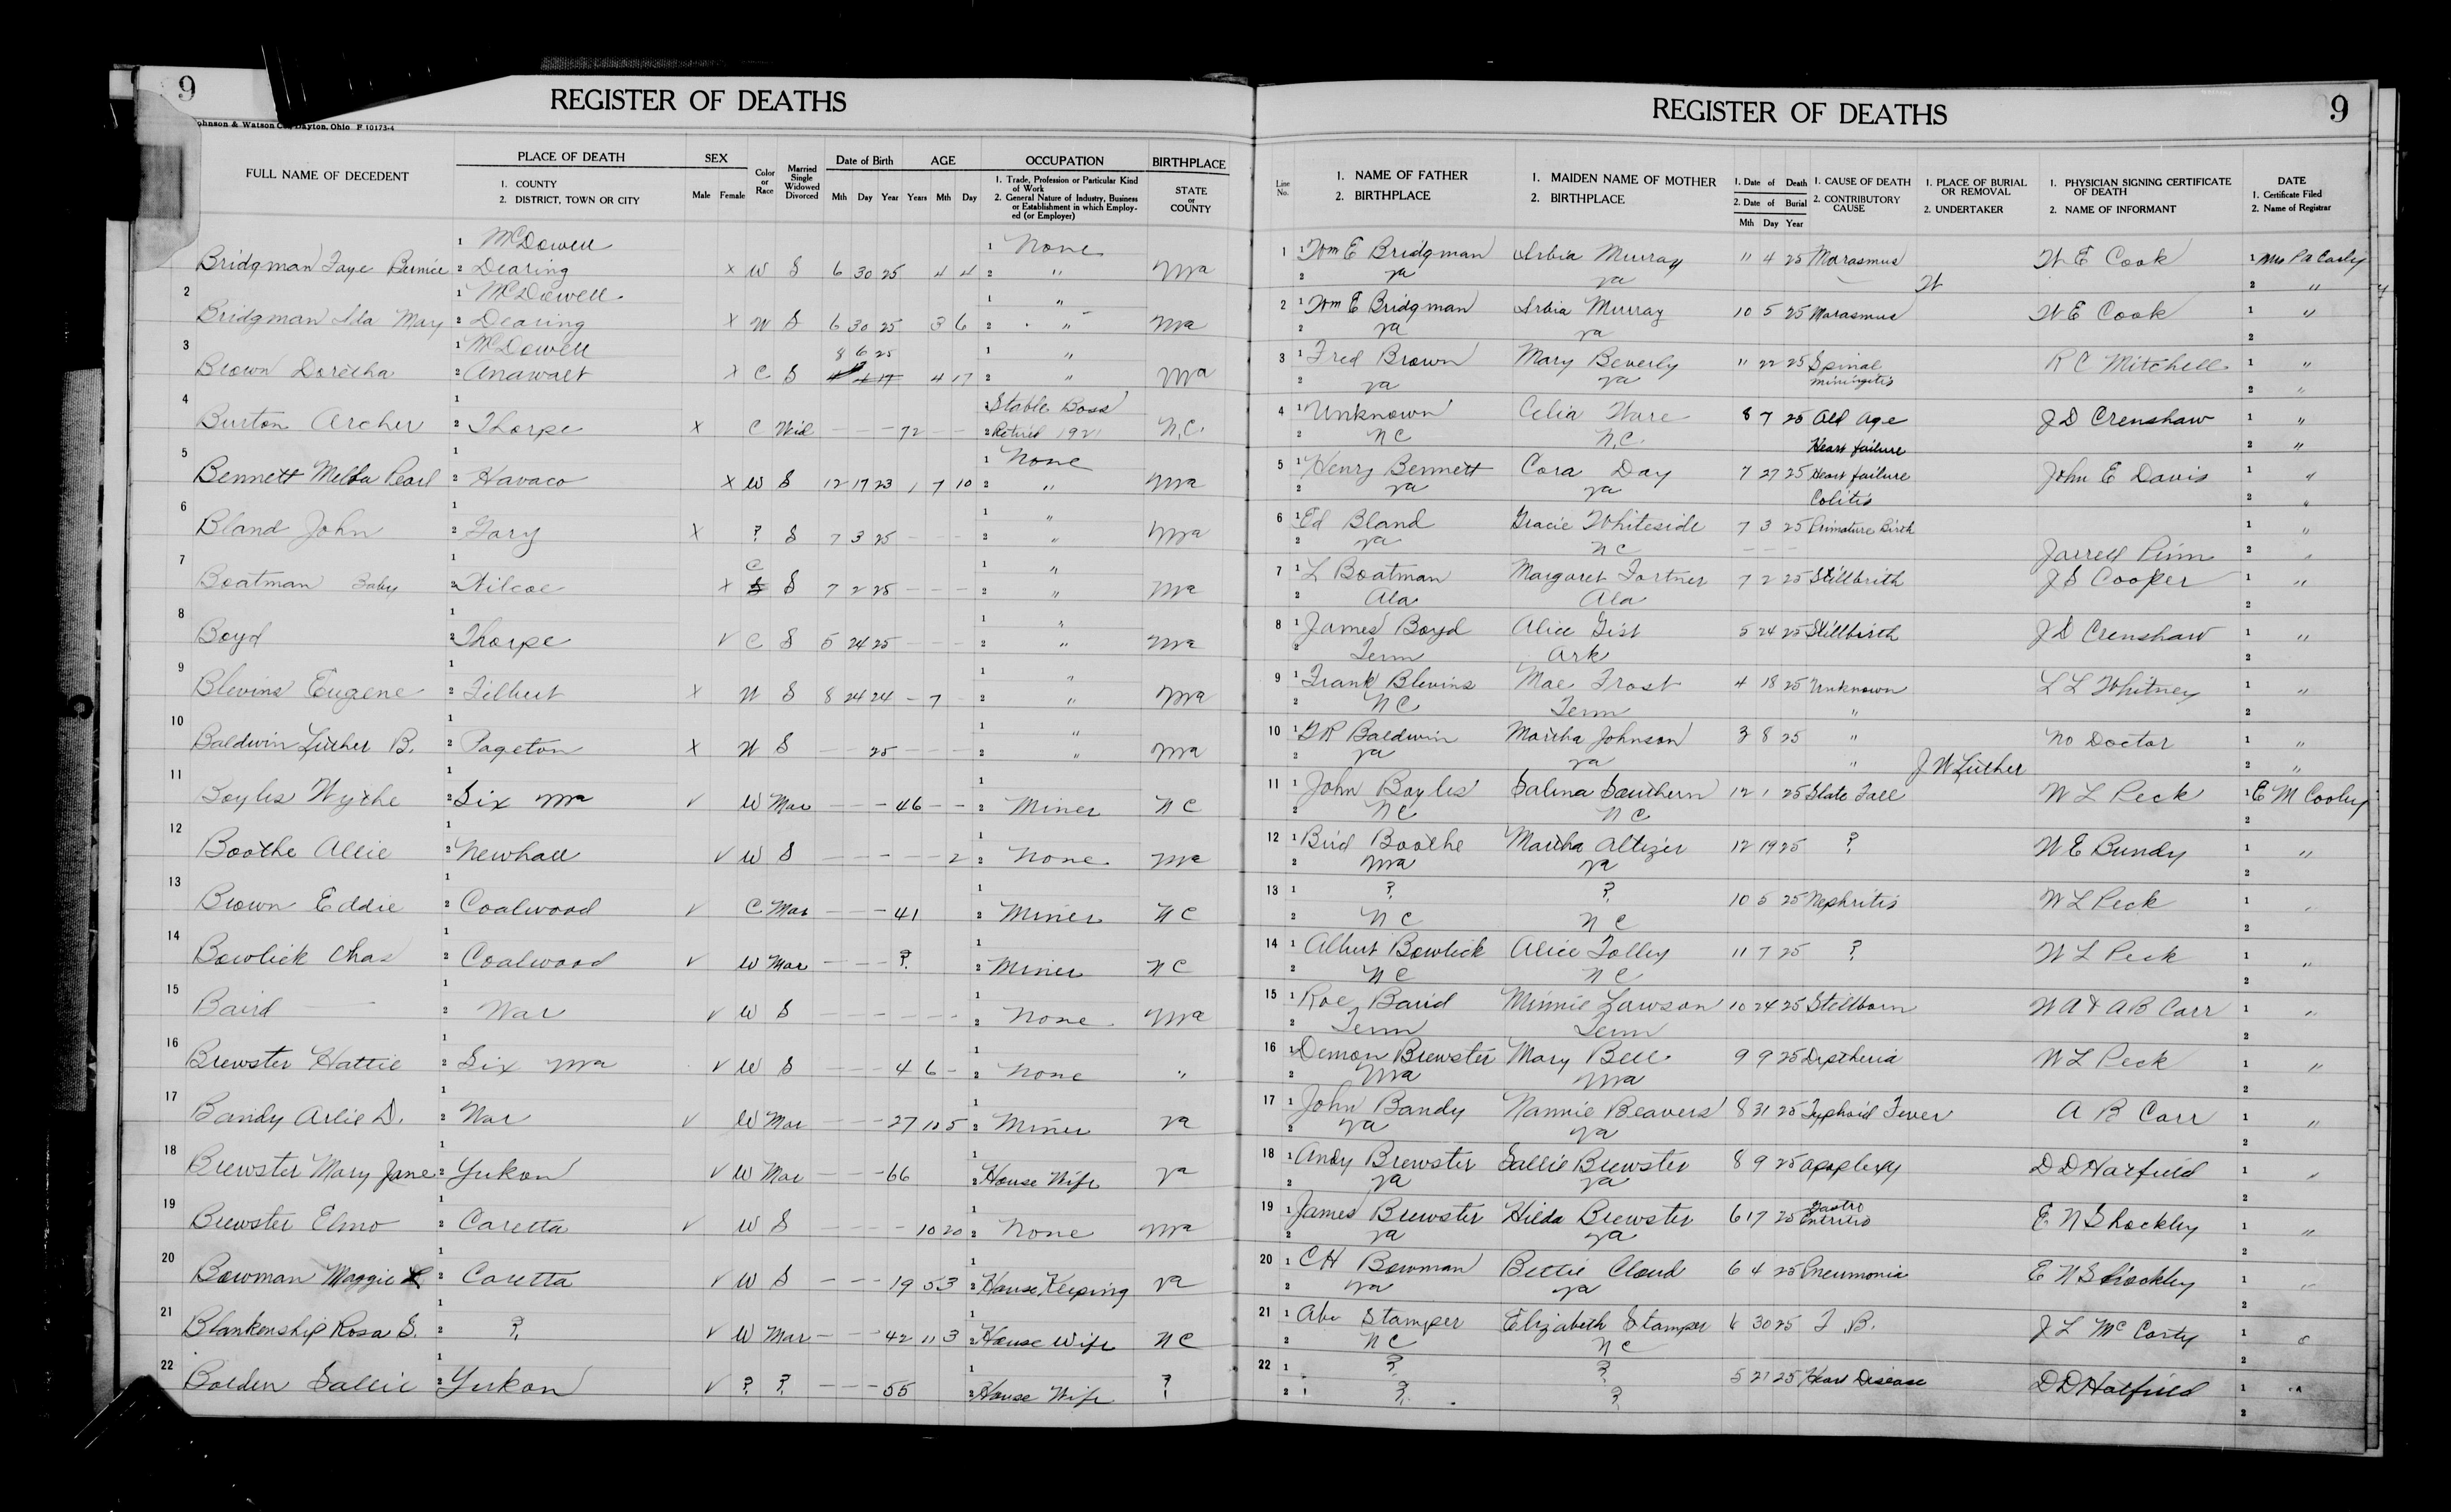 9
REGISTER OF DEATHS
Johnson & Watson Co., Dayton, Ohio F 10173-4
FULL NAME OF DECEDENT
PLACE OF DEATH
1. COUNTY
2. DISTRICT, TOWN OR CITY
SEX
Male Female
Color or Race
Married Single Widowed Divorced
Date of Birth
Mth Day Year
AGE
Years Mth Day
OCCUPATION
1. Trade, Profession or Particular Kind of Work
2. General Nature of Industry, Business or Establishment in which Employed (or Employer)
BIRTHPLACE
STATE or COUNTY
1 McDowell 1 None
Bridgman Faye Bernice 2 Dearing X W S 6 30 25 4 4 2 " Wva
2 1 McDowell 1 "
Bridgman Ida May 2 Dearing X W S 6 30 25 3 6 2 " Wva
3 1 McDowell 8 6 25 1 "
Brown Doretha 2 Anawalt X C S 4 17 4 17 2 " Wva
4 1 1 Stable Boss
Burton Archer 2 Thorpe X C Wid — — — 72 — — 2 Retired 1921 N.C.
5 1 1 None
Bennett Melba Pearl 2 Havaco X W S 12 17 23 1 7 10 2 " Wva
6 1 1 "
Bland John 2 Gary X ? S 7 3 25 — — — 2 " Wva
7 1 C 1 "
Boatman Baby 2 Filcoe X S S 7 2 25 — — — 2 " Wva
8 1 1 "
Boyd 2 Thorpe ✓ C S 5 24 25 — — — 2 " Wva
9 1 1 "
Blevins Eugene 2 Filbert X W S 8 24 24 — 7 — 2 " Wva
10 1 1 "
Baldwin Luther B. 2 Pageton X W S — — 25 — — — 2 " Wva
11 1 1
Boyles Wythe 2 Six Wva ✓ W Mar — — — 46 — — 2 Miner NC
12 1 1
Boothe Allie 2 Newhall ✓ W S — — — — — 2 2 None Wva
13 1 1
Brown Eddie 2 Coalwood ✓ C Mar — — — 41 2 Miner NC
14 1 1
Bowlick Chas 2 Coalwood ✓ W Mar — — — ? 2 Miner NC
15 1 1
Baird — 2 War ✓ W S — — — — — — 2 None Wva
16 1 1
Brewster Hattie 2 Six Wva ✓ W S — — — 4 6 — 2 None "
17 1 1
Bandy Arlie D. 2 War ✓ W Mar — — — 27 10 5 2 Miner Va
18 1 1
Brewster Mary Jane 2 Yukon ✓ W Mar — — — 66 2 House Wife Va
19 1 1
Brewster Elmo 2 Caretta ✓ W S — — — — 10 20 2 None Wva
20 1 1
Bowman Maggie L 2 Caretta ✓ W S — — — 19 5 3 2 House Keeping Va
21 1 1
Blankenship Rosa S. 2 ? ✓ W Mar — — — 42 11 3 2 House Wife NC
22 1 1
Bolden Sallie 2 Yukon ✓ ? ? — — — 55 2 House Wife ?
9
REGISTER OF DEATHS
Line No.
1. NAME OF FATHER
2. BIRTHPLACE
1. MAIDEN NAME OF MOTHER
2. BIRTHPLACE
1. Date of Death
2. Date of Burial
Mth Day Year
1. CAUSE OF DEATH
2. CONTRIBUTORY CAUSE
1. PLACE OF BURIAL OR REMOVAL
2. UNDERTAKER
1. PHYSICIAN SIGNING CERTIFICATE OF DEATH
2. NAME OF INFORMANT
DATE
1. Certificate Filed
2. Name of Registrar
1 1 Wm E Bridgman Arbia Murray 11 4 25 Marasmus W E Cook 1 Mrs PA Cooley
2 Va Va W 2 "
2 1 Wm E Bridgman Arbia Murray 10 5 25 Marasmus W E Cook 1 "
2 Va Va 2
3 1 Fred Brown Mary Beverly 11 22 25 Spinal R C Mitchell 1 "
2 Va Va Miningitis 2 "
4 1 Unknown Celia Ware 8 7 25 Old Age J D Crenshaw 1 "
2 NC N.C. Heart failure 2 "
5 1 Henry Bennett Cora Day 7 27 25 Heart failure John E Davis 1 "
2 Va Va Colitis 2 "
6 1 Ed Bland Gracie Whiteside 7 3 25 Primature Birth 1 "
2 Va NC — — — Jarrell Pinn 2 "
7 1 L Boatman Margaret Fortner 7 2 25 Stillbrith J S Cooper 1 "
2 Ala Ala 2
8 1 James Boyd Alice Gist 5 24 25 Stillbirth J D Crenshaw 1 "
2 Tenn Ark 2
9 1 Frank Blevins Mae Frost 4 18 25 Unknown L L Whitney 1 "
2 NC Tenn " 2
10 1 G R Baldwin Martha Johnson 3 8 25 " No Doctor 1 "
2 Va Va " J W Luther 2 "
11 1 John Boyles Salina Southern 12 1 25 Slate Fall W L Peck 1 E M Cooley
2 NC NC 2
12 1 Bird Boothe Martha Altizer 12 19 25 ? W E Bundy 1 "
2 Wva Va 2
13 1 ? ? 10 5 25 Nephritis W L Peck 1 "
2 NC NC 2
14 1 Albert Bowlick Alice Tolley 11 7 25 ? W L Peck 1 "
2 NC NC 2
15 1 Roe Barid Minnie Lawson 10 24 25 Stillborn W A & A B Carr 1 "
2 Tenn Tenn 2
16 1 Demon Brewster Mary Bell 9 9 25 Diptheria W L Peck 1 "
2 Wva Wva 2
17 1 John Bandy Nannie Beavers 8 31 25 Typhoid Fever A B Carr 1 "
2 Va Va 2
18 1 Andy Brewster Sallie Brewster 8 9 25 Apoplexy D D Hatfield 1 "
2 Va Va 2
19 1 James Brewster Hilda Brewster 6 17 25 Gastro E N Shockley 1 "
2 Va Va 2
20 1 C H Bowman Bettie Cloud 6 4 25 Pneumonia E N Shockley 1 "
2 Va Va 2
21 1 Abe Stamper Elizabeth Stamper 6 30 25 T.B. J L McCarty 1 "
2 NC NC 2
22 1 ? ? 5 21 25 Heart Disease D D Hatfield 1 "
2 ? ? 2